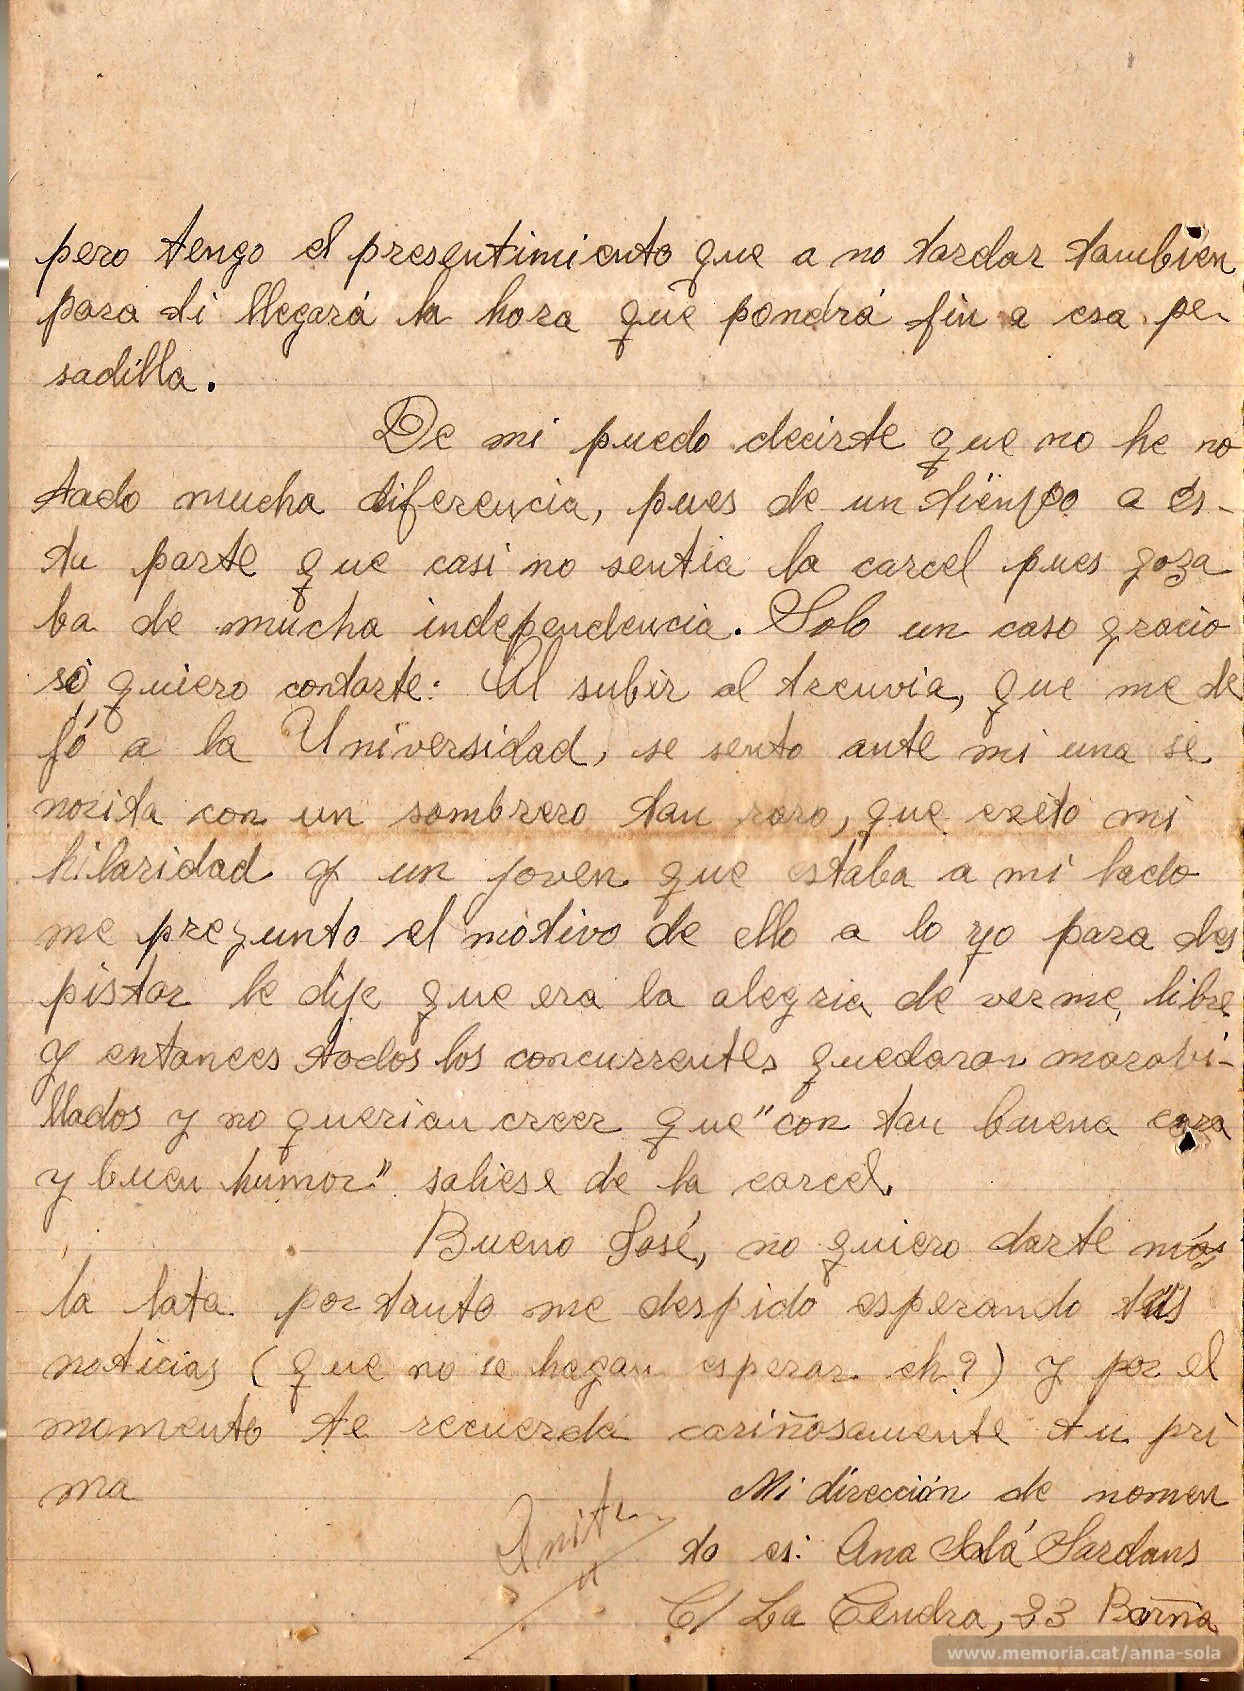 pero tengo el presentimiento que a no tardar tambien
para ti llegará la hora que pondrá fin a esa pe-
sadilla.
De mi puedo decirte que no he no
tado mucha diferencia, pues de un tiempo a es-
ta parte que casi no sentia la carcel pues goza
ba de mucha independencia. Solo un caso gracio
so quiero contarte: Al subir al trenvia, que me de
jó a la Universidad, se sento ante mi una se
norita con un sombrero tan raro, que exito mi
hilaridad y un joven que estaba a mi lado
me pregunto el motivo de ello a lo yo para des
pistar le dije que era la alegria de verme libre
y entonces todos los concurrentes quedaron maravi-
llados y no querian creer que "con tan buena cara
y buen humor" saliese de la carcel.
Bueno José, no quiero darte más
la lata por tanto me despido esperando tus
noticias (que no se hagan esperar eh?) y por el
momento te recuerda cariñosamente tu pri
ma
Anita
Mi dirección de momen
to es: Ana Solá Sardans
C/ La Cendra, 33 Barña
www.memoria.cat/anna-sola